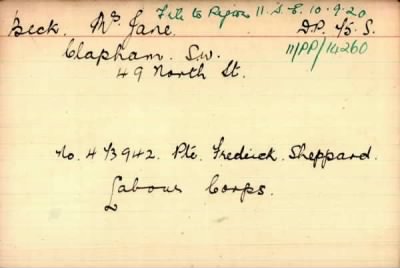 File to Region 11. S.E. 10.9.20
Beck. Mrs. Jane. D.P. /3. S.
Clapham. S.W. 11/PP/14260
49 North St.
No. 4 /3942. Pte. Fredrick. Sheppard.
Labour Corps.